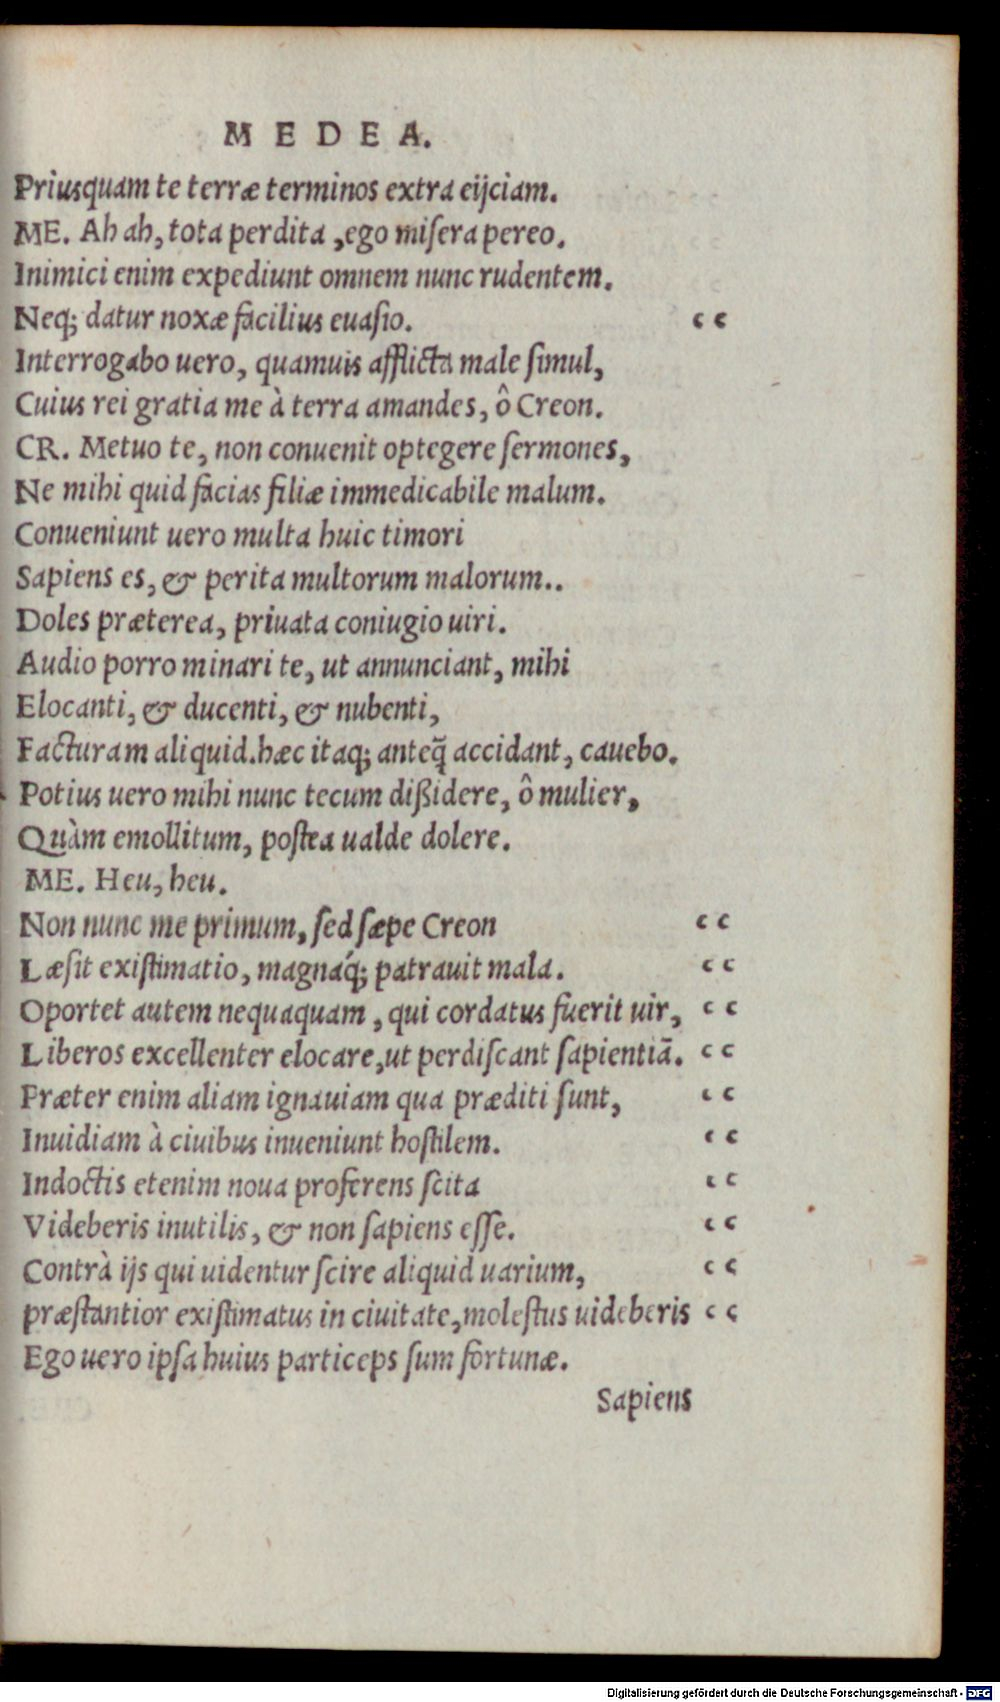 MEDEA.
Priusquam te terræ terminos extra eijciam.
ME. Ah ah, tota perdita, ego miſera pereo.
Inimici enim expediunt omnem nunc rudentem.
Neq; datur noxæ facilius euaſio. “
Interrogabo uero, quamuis afflicta male ſimul,
Cuius rei gratia me à terra amandes, ô Creon.
CR. Metuo te, non conuenit optegere ſermones,
Ne mihi quid facias filiæ immedicabile malum.
Conueniunt uero multa huic timori
Sapiens es, & perita multorum malorum..
Doles præterea, priuata coniugio uiri.
Audio porro minari te, ut annunciant, mihi
Elocanti, & ducenti, & nubenti,
Facturam aliquid. hæc itaq; anteq̃ accidant, cauebo.
Potius uero mihi nunc tecum dißidere, ô mulier,
Quàm emollitum, poſtea ualde dolere.
ME. Heu, heu.
Non nunc me primum, ſed ſæpe Creon “
Læſit exiſtimatio, magnaq́; patrauit mala. “
Oportet autem nequaquam, qui cordatus fuerit uir, “
Liberos excellenter elocare, ut perdiſcant ſapientiã. “
Præter enim aliam ignauiam qua præditi ſunt, “
Inuidiam à ciuibus inueniunt hoſtilem. “
Indoctis etenim noua proferens ſcita “
Videberis inutilis, & non ſapiens eſſe. “
Contrà ijs qui uidentur ſcire aliquid uarium, “
præſtantior exiſtimatus in ciuitate, moleſtus uideberis “
Ego uero ipſa huius particeps ſum fortunæ.
Sapiens
Digitalisierung gefördert durch die Deutsche Forschungsgemeinschaft - DFG